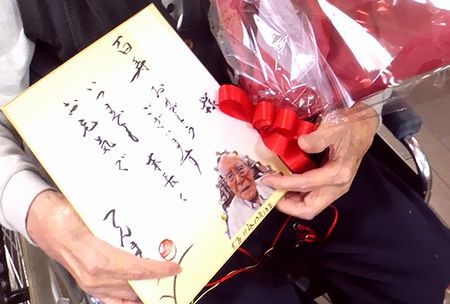 百寿
様
おめでとう
ございます
いつまでも
末長く
お元気で